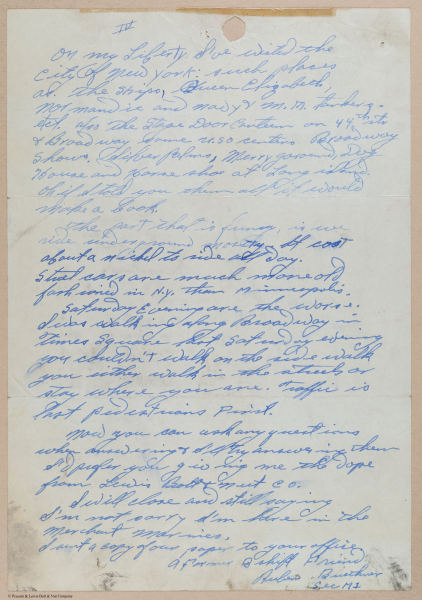 IV
On my Liberty I've visited the
City of New York: such places
as the ships, Queen Elizabeth,
Normandie and many M.M. tankers.
etc. Also the Stage Door Canteen on 44th st
& Broadway some U.S.O centers Broadway
Shows. Silver Palms, Merry ground, Dog
House and Horse shoe at Long island.
Oh if I told you them all it would
make a book.
The part that is funny, is we
ride underground mostly. It cost
about a nickel to ride all day.
Street cars are much more old
fashioned in N.Y. than Minneapolis.
Saturday Evening are the worse.
I was walking along Broadway in
Times Square last Saturday evening
you couldn't walk on the side walk
you either walk in the streets or
stay where you are. Traffic is
last pedestrians First.
Now you can ask any questions
when answering & I'll try answering them
I'd prefer you giving me the dope
from Lewis Bolt & Nut CO.
I will close and still saying
I'm not sorry I'm here in the
Merchant Marines.
I want a copy of our paper to your office
A former B shift Friend
Sec M2
© Waconia & Lewis Bolt & Nut Company